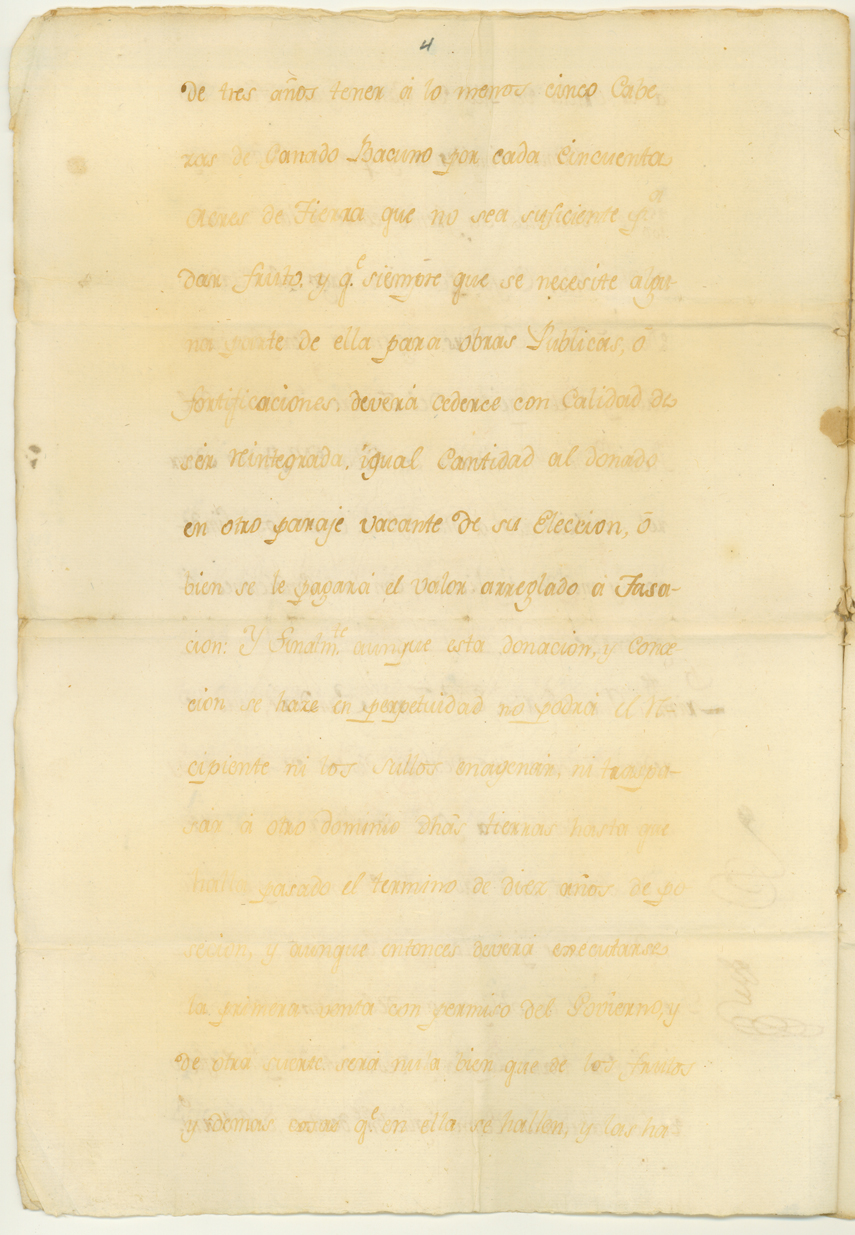 4
De tres años tener á lo menos cinco Cabe,
zas de Ganado Bacuno por cada Cincuenta
Acres de Tierra que no sea suficiente pª
dar fruto, y q.e siempre que se necesite algu-
na parte de ella para obras Publicas, ó
fortificaciones, deverá cederce con Calidad de
ser rintegrada, igual Cantidad al donado
en otro paraje vacante de su Eleccion, ó
bien se le pagará el valor arreglado á Tasa-
cion: Y Finalm.te aunque esta donacion, y Conce-
cion se haze en perpetuidad no podrá el R-
cipiente ni los sullos enagenar, ni traspa-
sar á otro dominio dhas tierras hasta que
halla pasado el termino de diez años de po
secion, y aunque entonces deverá executarse
la primera venta con permiso del Govierno, y
de otra suerte será nula bien que de los frutos
y demas cosas q.e en ella se hallen, y las ha-